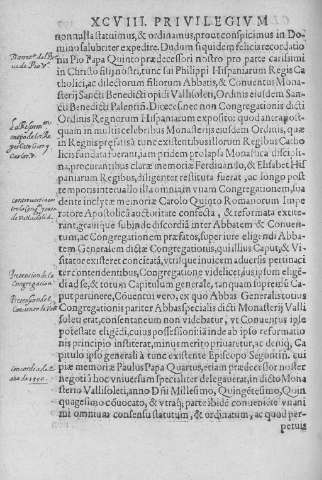 XCVIII. PRIVILEGIVM
nonnulla statuimus, & ordinamus, prout conspicimus in Do-
mino salubriter expedire. Dudum siquidem felicis recordatio
nis Pio Papa Quinto prædecessori nostro pro parte carissimi
in Christo filij nostri, tunc sui Philippi Hispaniarum Regis Ca
tholici, ac dilectorum filiorum Abbatis, & Conuentus Monas
terij Sancti Benedicti opidi Vallisoleti, Ordinis eiusdem San
cti Benedicti Palentin. Diœcesis nec non Congregationis dicti
Ordinis Regnorum Hispaniarum exposito: quod antea post
quam in multis celebribus Monasterijs eiusdem Ordinis, quæ
in Regnis præfatis à tunc existentibus illorum Regibus Catho
licis fundata fuerant, iam pridem prolapsa Monastica discipli
na, procurantibus claræ memoriæ Ferdinando, & Elisabet His
paniarum Regibus, diligenter restituta fuerat, ac longo post
temporis interuallo illa omnia in vnam Congregationem, sua
dente inclytæ memoriæ Carolo Quinto Romanorum Impe
ratore Apostolica auctoritate confecta, & reformata extite-
rant, grauique subinde discordia inter Abbatem & Conuen
tum, ac Congregationem præfatos, super iure eligendi Abba-
tem Generalem dictæ Congregationis, qui illius Caput, & Vi
sitator existeret concitata, vtrisque inuicem aduersis pertinaci
ter contendentibus, Congregatione videlicet, dus ipsum eligē-
di ad se, & totum Capitulum generale, tanquam supremū Ca-
put pertinere, Cōuentui vero, ex quo Abbas Generalis totius
Congregationis pariter Abbas specialis dicti Monasterij Valli
soleti erat, consentaneum non videbatur, vt Conuentus ipse
potestate eligēdi, cuius possessioni iā inde ab ipso reformatio
nis principio institerat, minus merito priuaretur, ac deniq; Ca
pitulo ipso generali à tunc existente Episcopo Segouin. cui
piæ memoriæ Paulus Papa Quartus, etiam prædecessor noster
negotiū hoc vniuersum specialiter delegauerat, in dicto Mona
sterio Vallisoleti, anno Dñi Millesimo, Quingētesimo, Quin
quagesimo cōuocato, & vtraq; parte ibidē conueniēte vnani
mi omnium consensu statutum, & ordinatum, ac quod per-
petuis